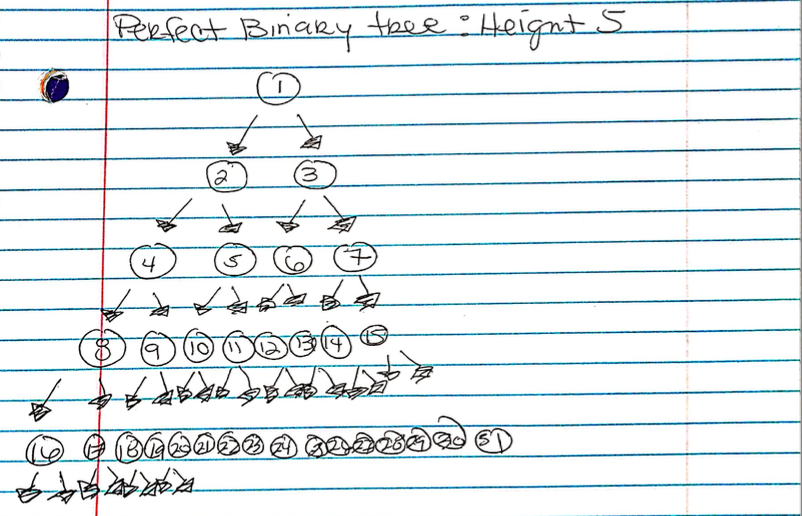 Perfect Binary tree : Height 5
1
2 3
4 5 6 7
8 9 10 11 12 13 14 15
16 17 18 19 20 21 22 23 24 28 29 30